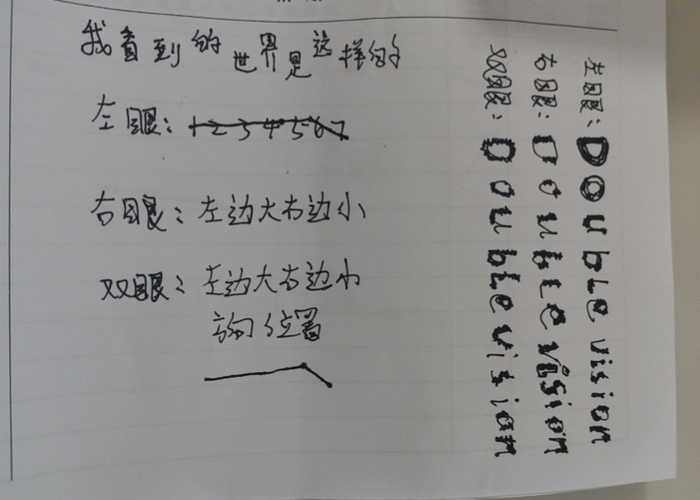 我看到的世界是这样的
左眼：1234567
右眼：左边大右边小
双眼：左边大右边小
位置
左眼：Double vision
右眼：Double vision
双眼：Double vision